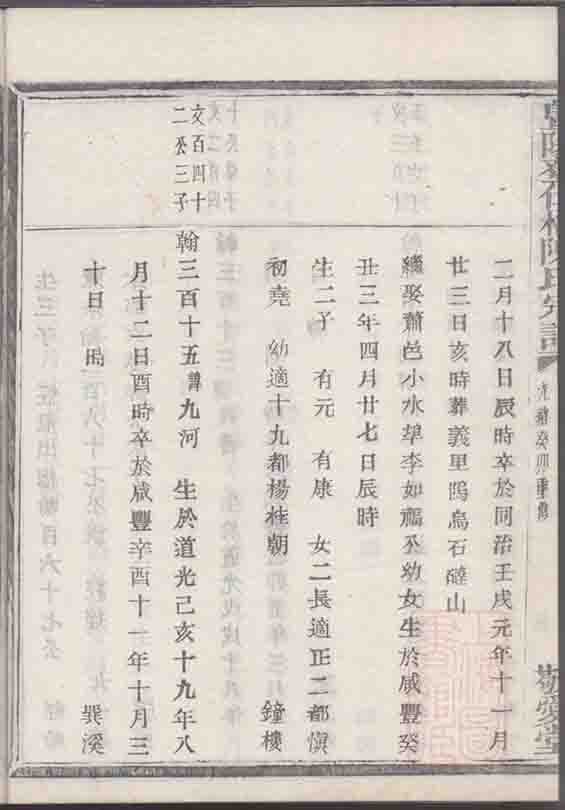 陳氏宗譜
光緒癸卯重修
敬愛堂
二月十八日辰時卒於同治壬戌元年十一月
廿三日亥時葬義里塢烏石磋山
繼娶蕭邑小水埠李如鵩公幼女生於咸豐癸
丑三年四月廿七日辰時
生二子 有元 有康 女二長適正二都慎
初堯 幼適十九都楊桂朝 鐘樓
文百四十
二公三子
翰三百十五諱九河 生於道光己亥十九年八
月十二日酉時卒於咸豐辛酉十一年十月三
十日 時 巽溪